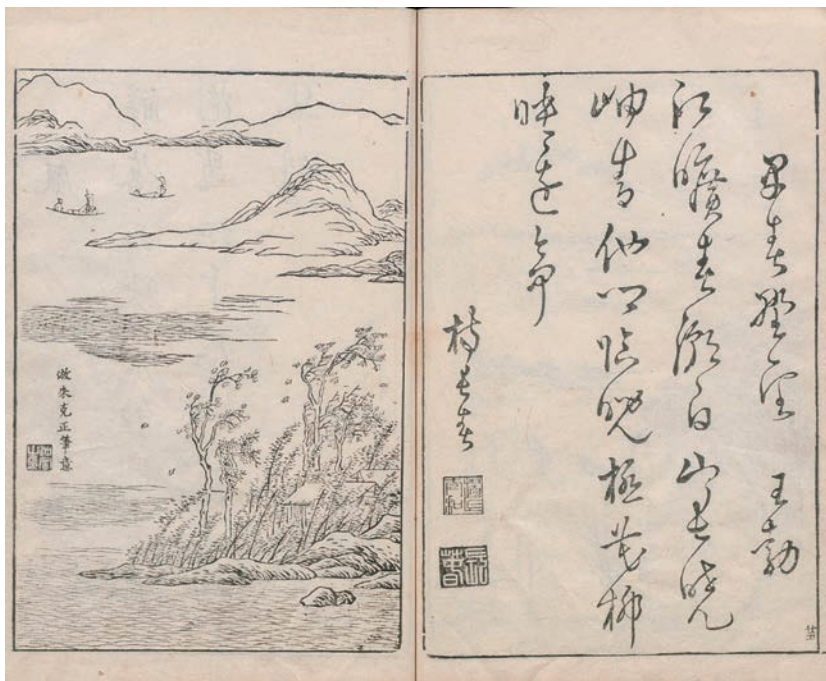 早春野望 王勃
江曠春潮白山長曉
岫青他鄉臨睨極花柳
映邊亭
長春
倣朱克正筆意